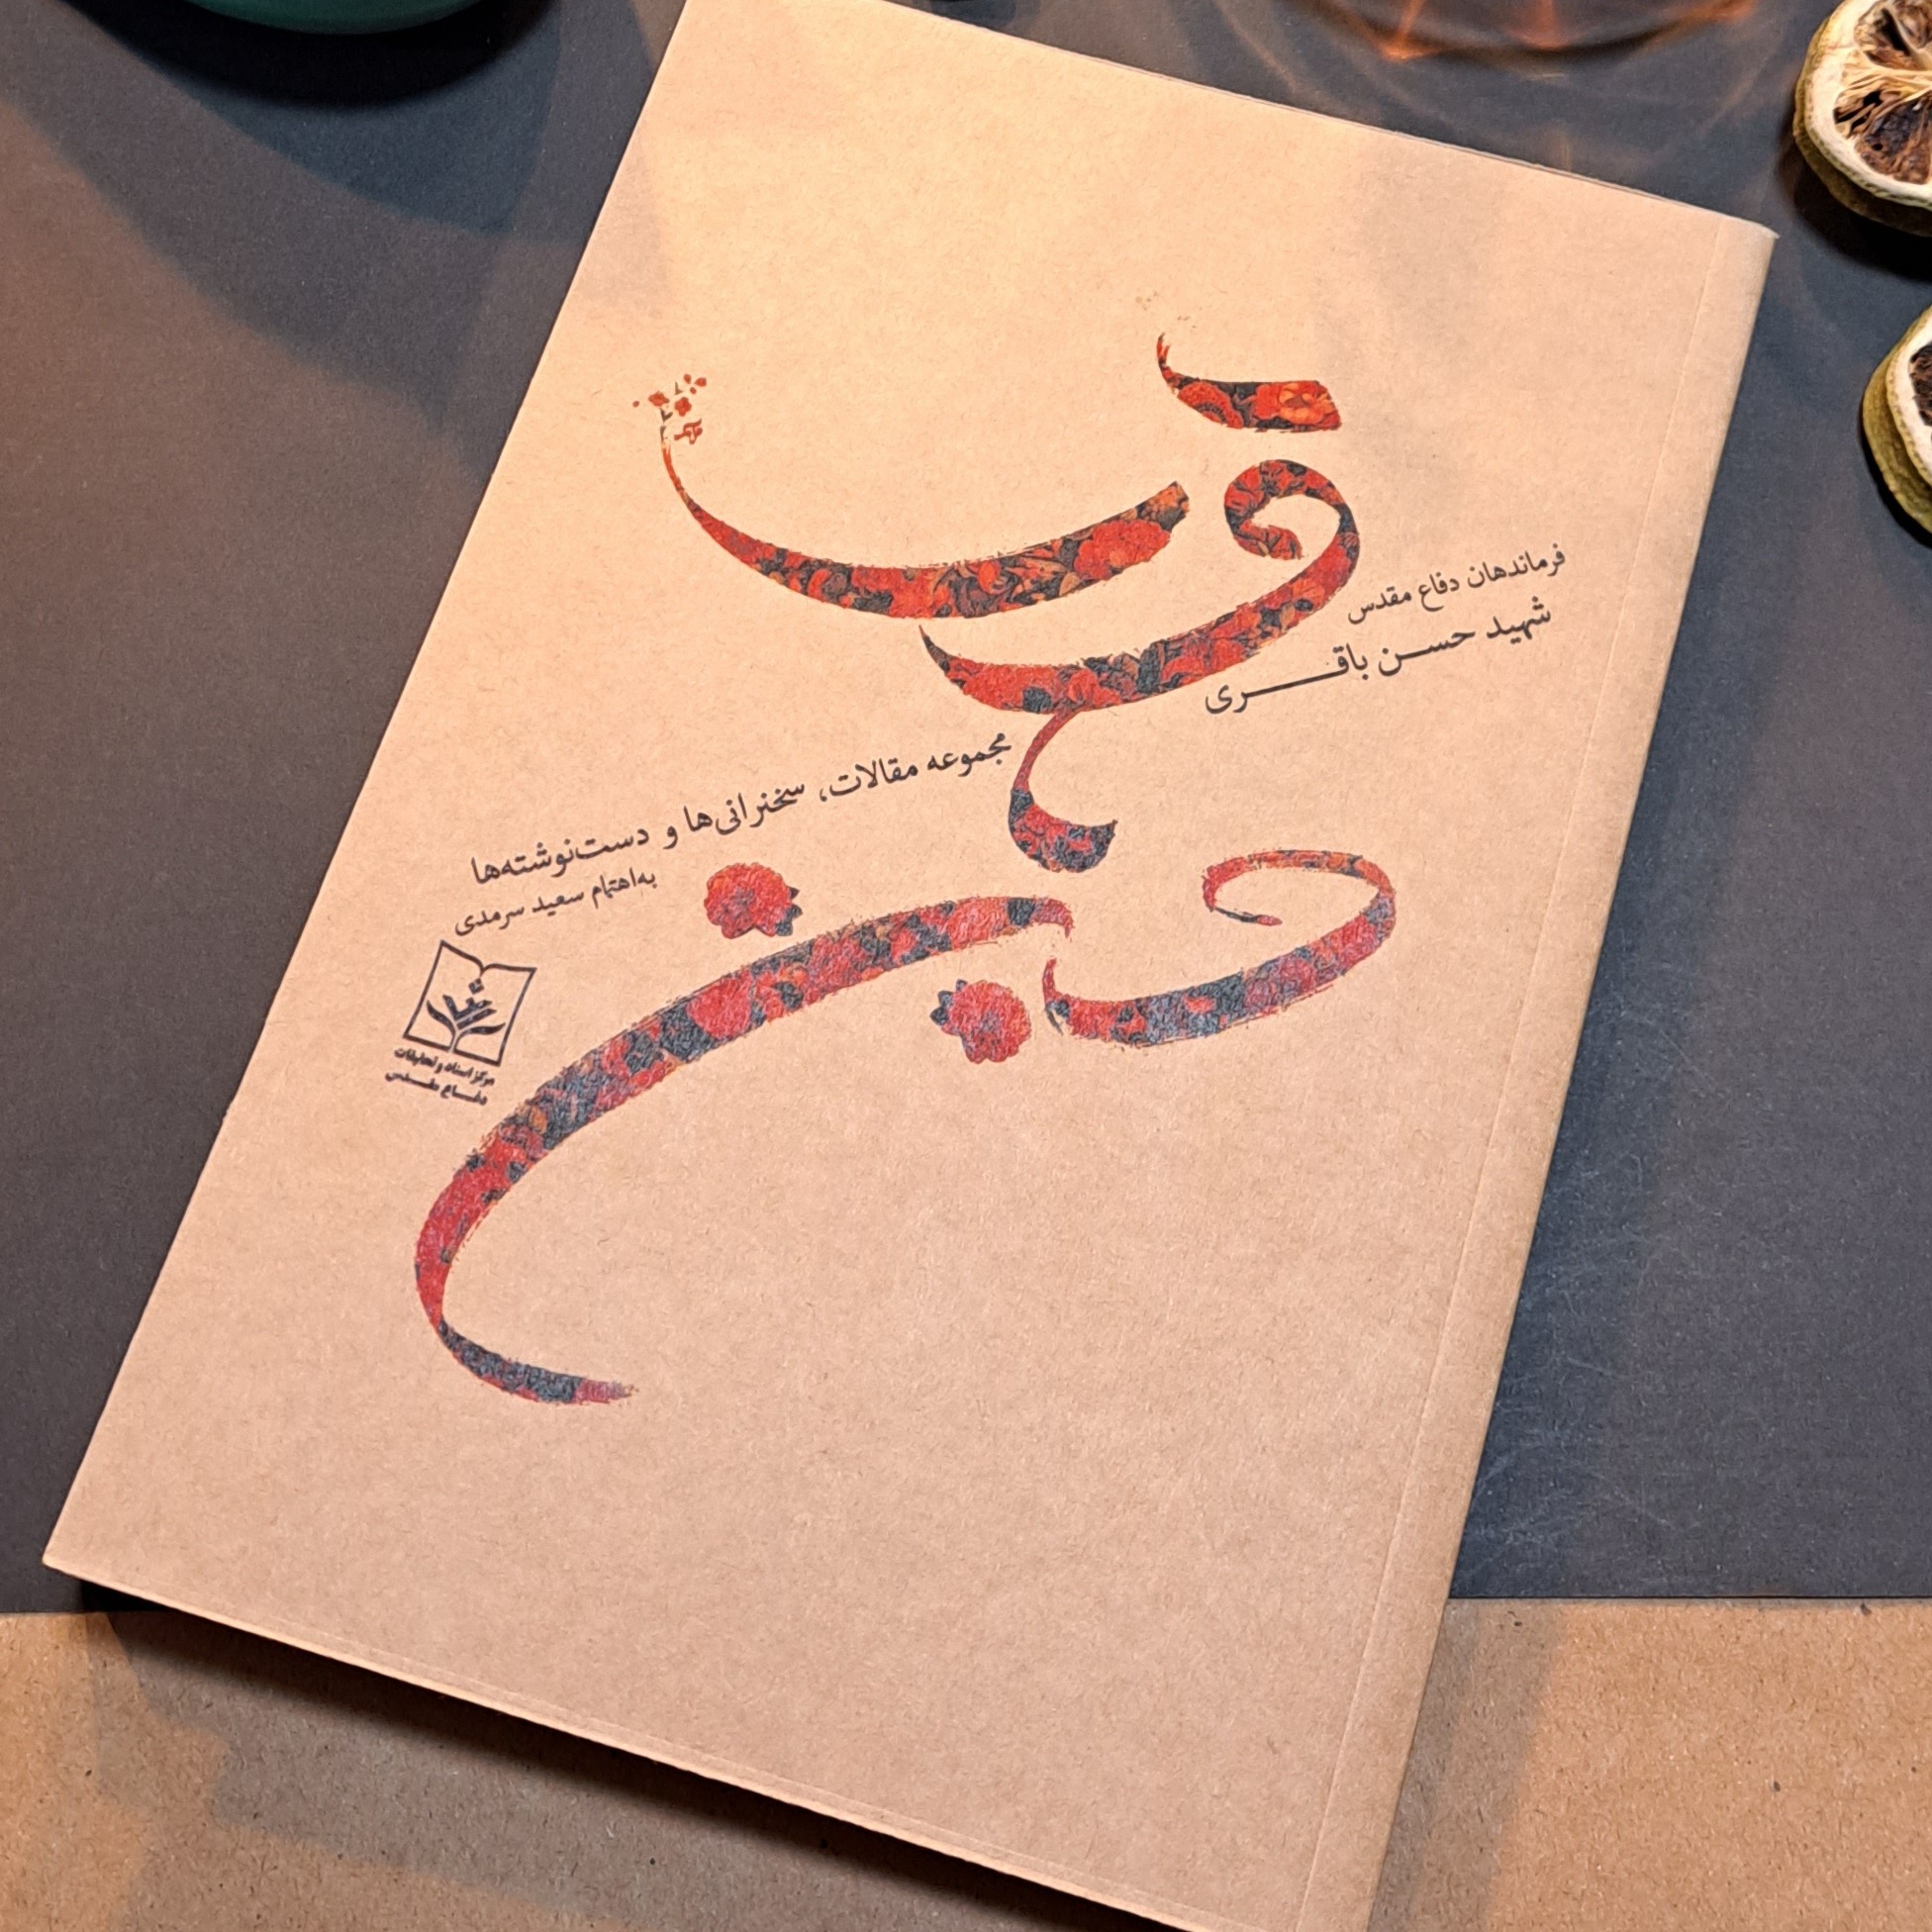 فرماندهان دفاع مقدس
شهید حسن باقری
مجموعه مقالات، سخنرانی‌ها و دست‌نوشته‌ها
به‌اهتمام سعید سرمدی
مرکز اسناد و تحقیقات
دفاع مقدس